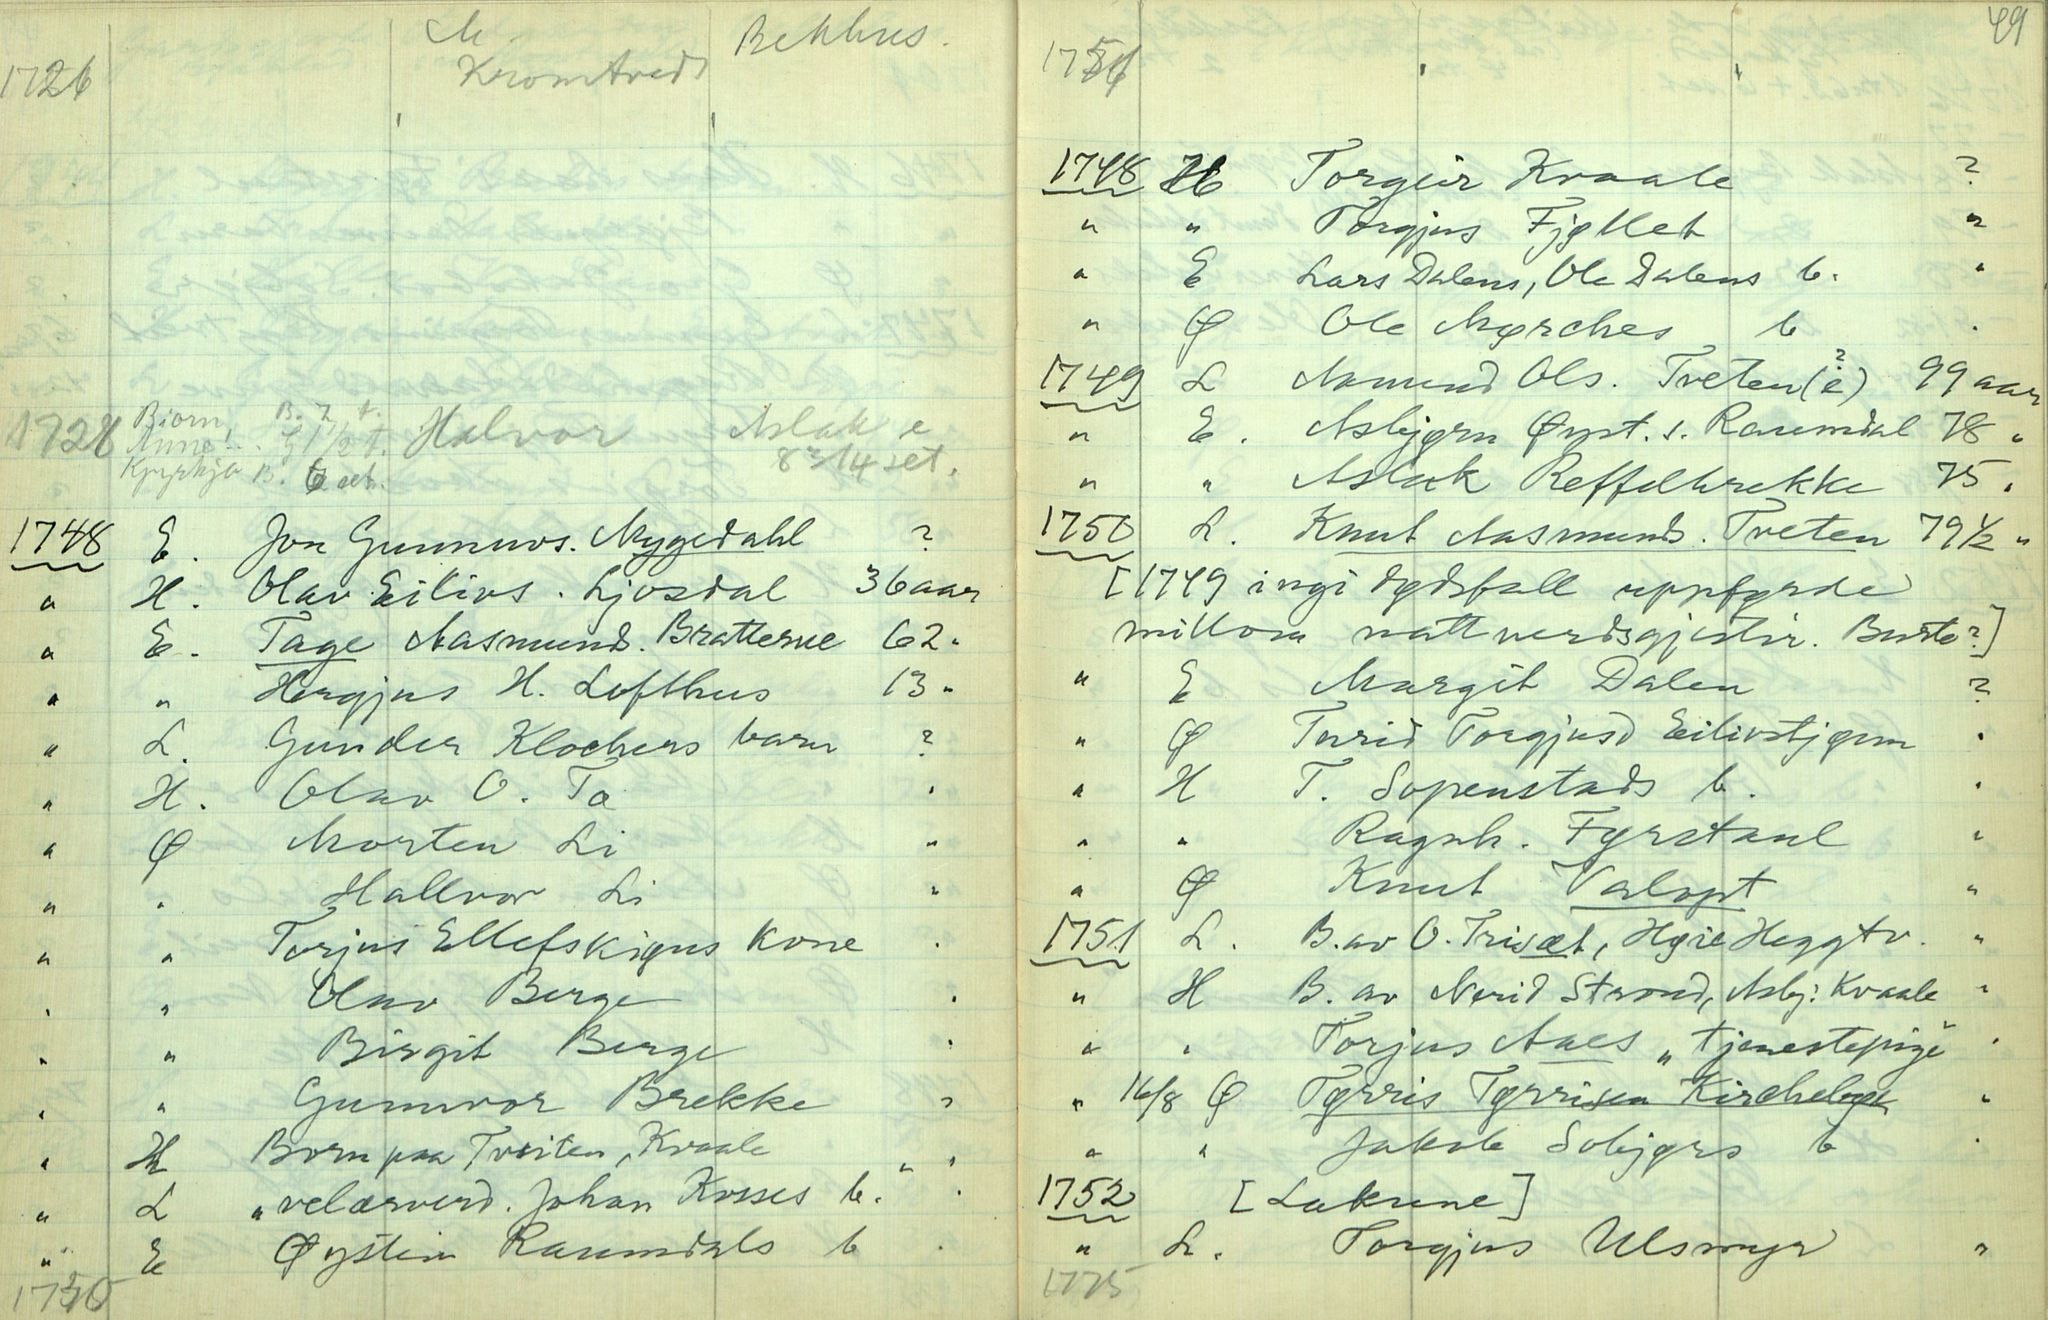 M. Bekhus.
1726 Kromtveds
1728 Bjorn, B. 7 t. Halvor Aslak e
Anne G 1 1/2 t.
Kyrkja B. 6 set. 8 3/14 set.
1748 E. Jon Gunnuvs. Mygedahl ?
" H. Olav Eilivs. Ljosdal 36 aar
" E. Tage Aasmund. Bratterue 62 "
" " Hergjus H. Lofthus 13 "
" L. Gunder Klochers barn ?
" H. Olav O. Tø "
" Ø Morten Li "
" " Hallvor Li "
" " Torjus Ellefskigus kone "
" " Olav Berge "
" " Birgit Berge "
" " Gunnvor Brekke "
" H Born paa Tveiten, Kvaale " "
" L " velærverd. Johan Kosses b. "
" E Øystein Raumdals b "
49
1748 H Torgeir Kvaale ?
" " Torgjus Fjøllet "
" E Lars Dalens, Ole Dalens b. "
" Ø Ole Mørches b "
1749 L Aamund Ols. Tveten (è?) 99 aar
" E. Asbjørn Øyst. s. Raumdal 78 "
" " Aslak Reffelbrekke 75 "
1750 L. Knut Aasmunds. Tveten 79 1/2 "
[1749 ingi dødsfall uppførde
millom nattverdsgjestir. Burte?]
" E Margit Dalen ?
" Ø Turid Torgjusd Eilivstjønn "
" H T. Sopenstads b. "
" " Ragnh. Fyrstaul "
" Ø Knut Valøpt "
1751 L. B. av O. Trisæt, Høie Heggtv. "
" H B. av Nerid Strond, Asbj. Kvaale "
" " Torjus Aaes "tjenestepige" "
" 16/8 Ø Tørris Tørrisen Kirchebøe "
" " Jakob Sobjørs b "
1752 [Lakune]
" L. Torgjus Ulsmyr "
1775